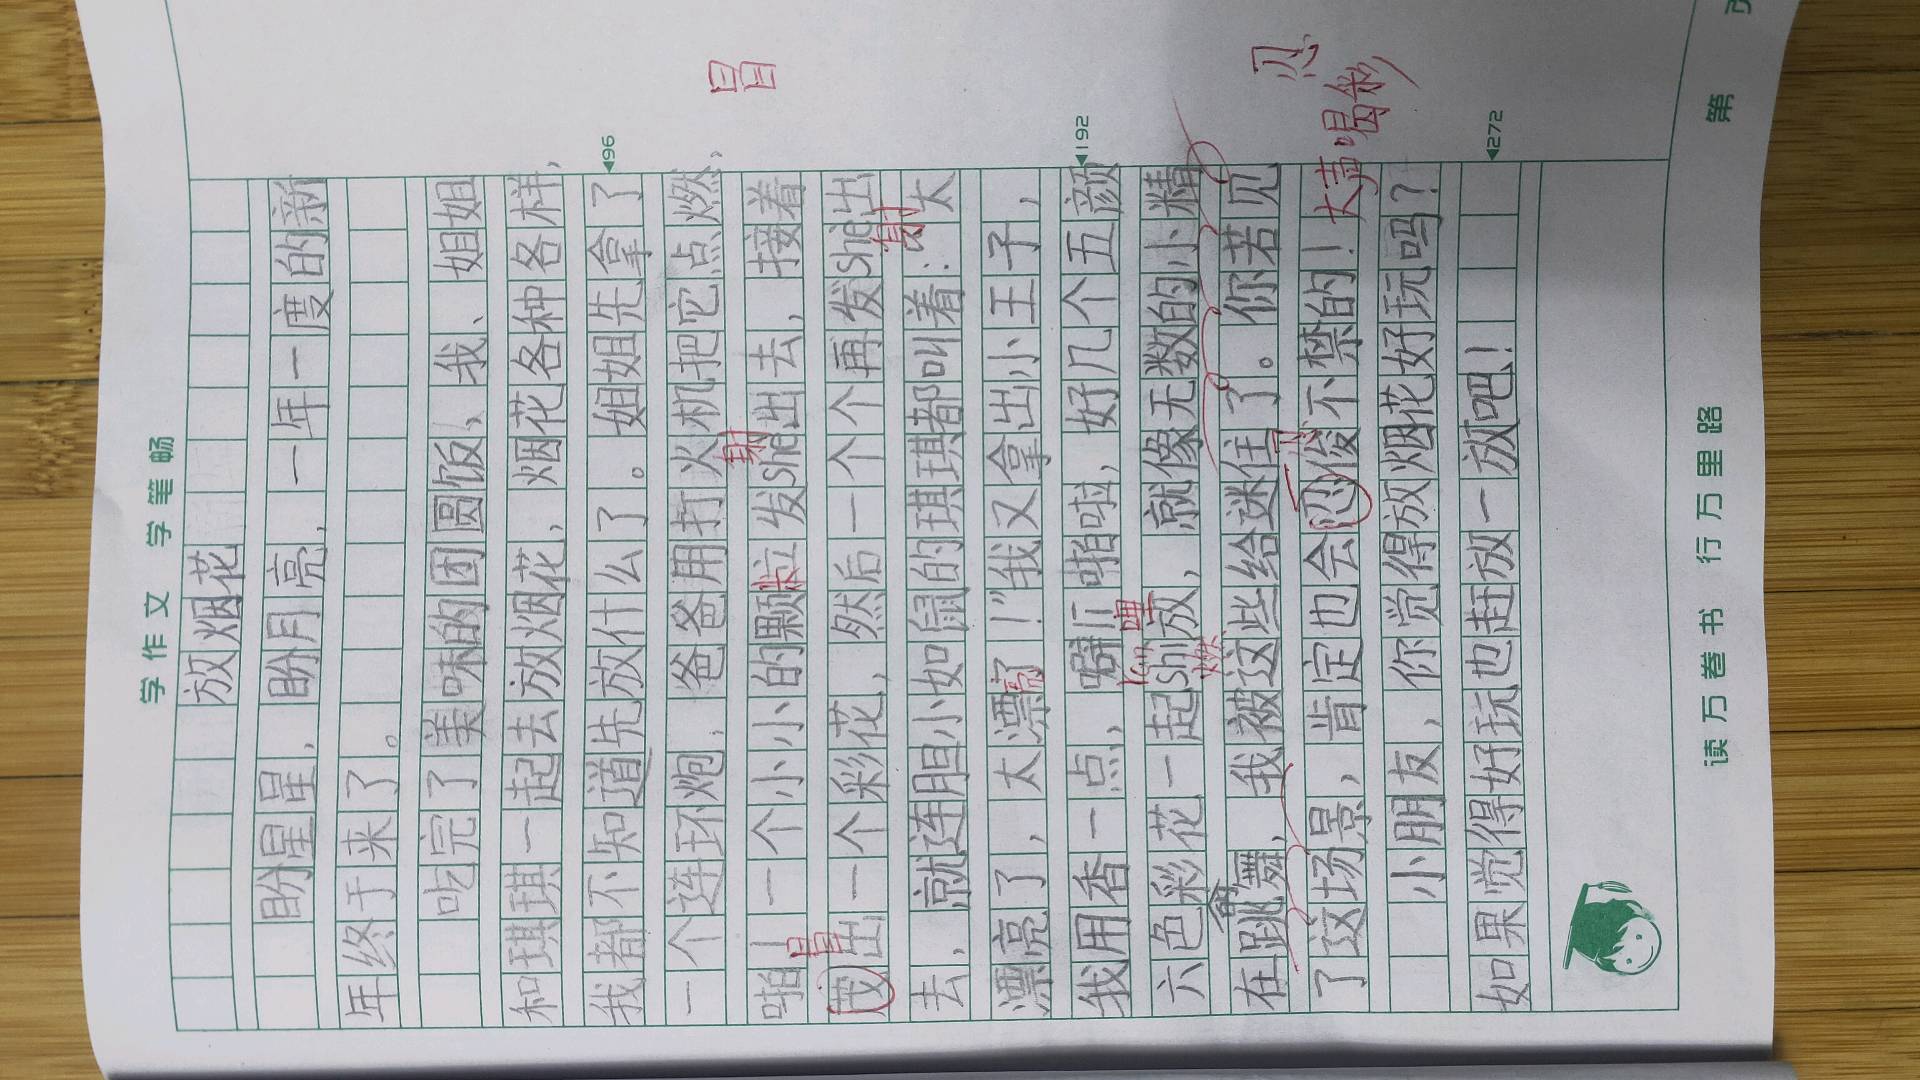 学作文 学笔畅
放烟花
盼星星，盼月亮，一年一度的新
年终于来了。
吃完了美味的团圆饭、我、姐姐
和琪琪一起去放烟花，烟花各种各样，
我都不知道先放什么了。姐姐先拿了
◀96
一个连环炮，爸爸用打火机把它点燃，
射
啪一一个小小的颗粒发she出去，接着
冒
冒
茂出一个彩花，然后一个个再发she出
射
去，就连胆小如鼠的琪琪都叫着：太
漂亮了，太漂亮了！”我又拿出小王子，
我用香一点，噼啪啦，好几个五颜
◀192
哩
六色彩花一起shi放，就像无数的小精
在跳舞，我被这些给迷住了。你若见
忍
了这场景，肯定也会忍俊不禁的！
大声喝彩
小朋友，你觉得放烟花好玩吗？
如果觉得好玩也赶放一放吧！
◀272
读万卷书 行万里路
第 页